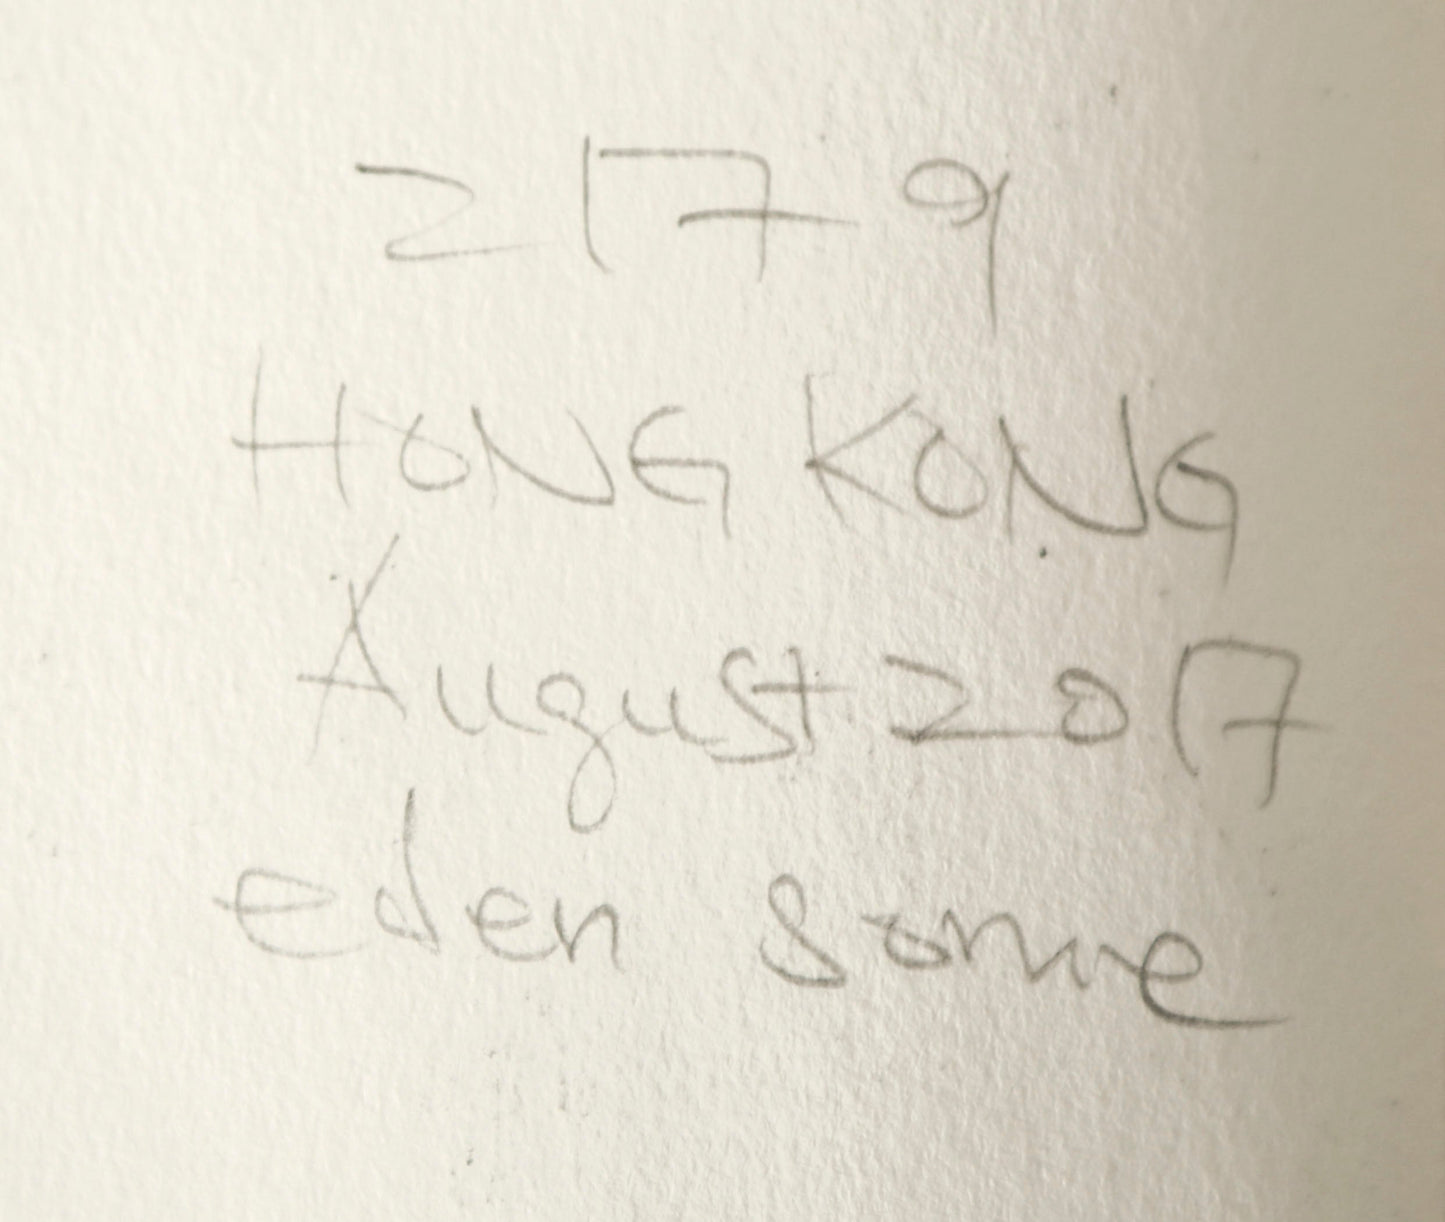 2179
HONG KONG
August 2017
eden some